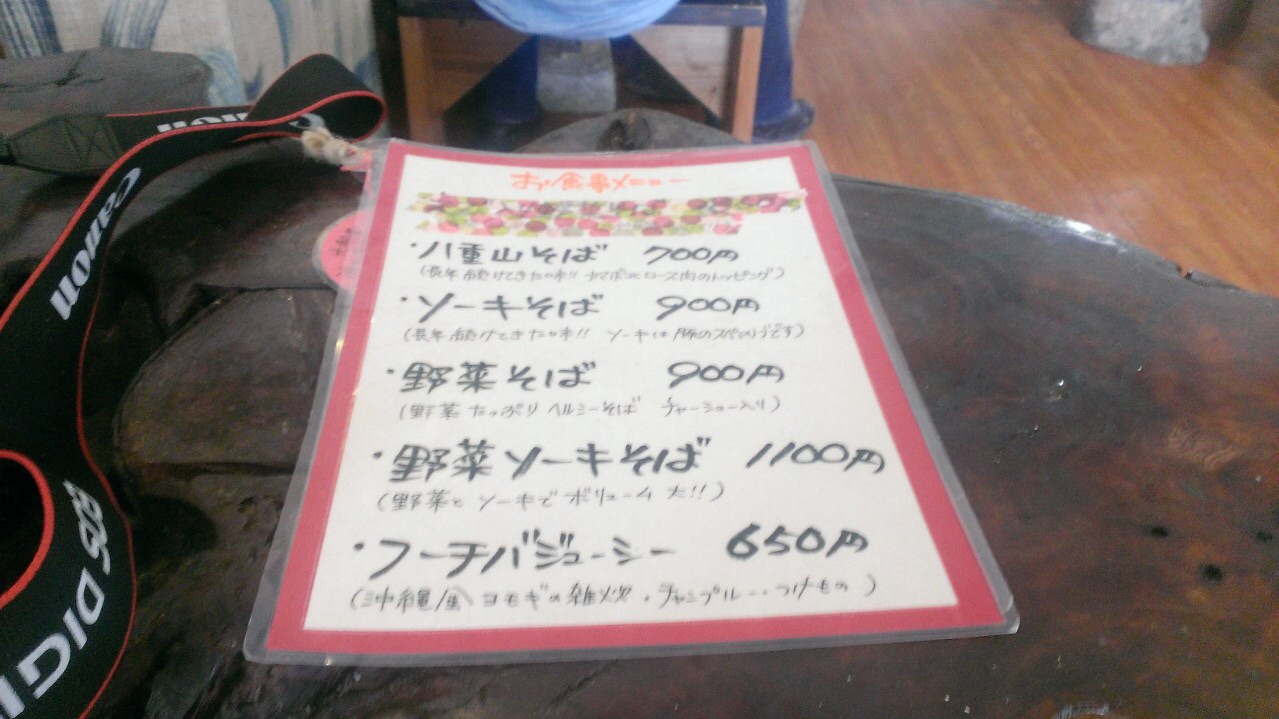 お食事メニュー
・八重山そば 700円
(長年続けてきた味!! カマボコとロース肉のトッピング)
・ソーキそば 900円
(長年続けてきた味!! ソーキは豚のスペアリブです)
・野菜そば 900円
(野菜たっぷりヘルシーそば チャーシュー入り)
・野菜ソーキそば 1100円
(野菜とソーキでボリューム大!!)
・フーチバジューシー 650円
(沖縄産ヨモギの雑炊・チャンプルー・つけもの)
Canon
Canon
EOS DIGI